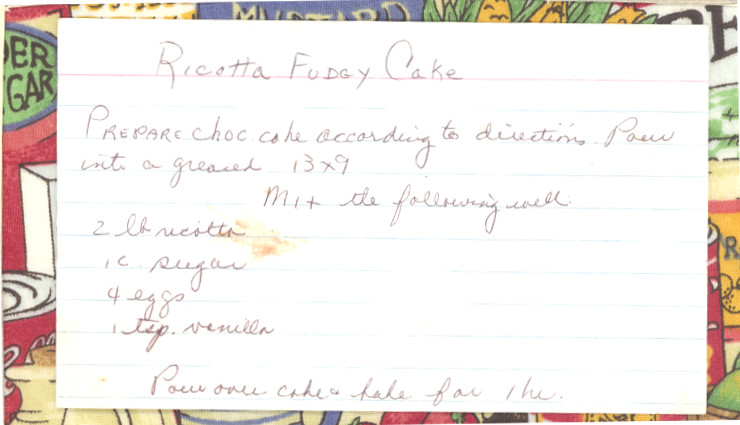 MUSTARD
DER
GAR
Ricotta Fudgy Cake
Prepare choc. cake according to directions. Pour
into a greased 13x9
Mix the following well:
2 lb ricotta
1 c. sugar
4 eggs
1 tsp. vanilla
Pour over cake & bake for 1 hr.